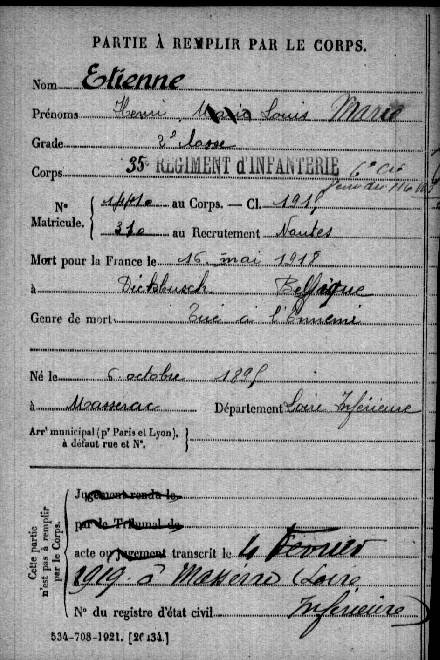 PARTIE À REMPLIR PAR LE CORPS.
Nom Etienne
Prénoms Henri Louis Marie
Grade 2e classe
Corps 35e REGIMENT d'INFANTERIE 6e Cie
N° Matricule. au Corps. — Cl. 1915
370 au Recrutement Nantes
Mort pour la France le 16 mai 1918
à Dickbusch Belgique
Genre de mort Tué à l'Ennemi
Né le 6 octobre 1895
à Masserac Département Loire Inférieure
Arrt municipal (pr Paris et Lyon), à défaut rue et N°.
Cette partie n'est pas à remplir par le Corps.
Jugement rendu le
par le Tribunal de
acte ou jugement transcrit le 4 Février
1919 à Loire
N° du registre d'état civil Inférieure
534-708-1921. [26434.]